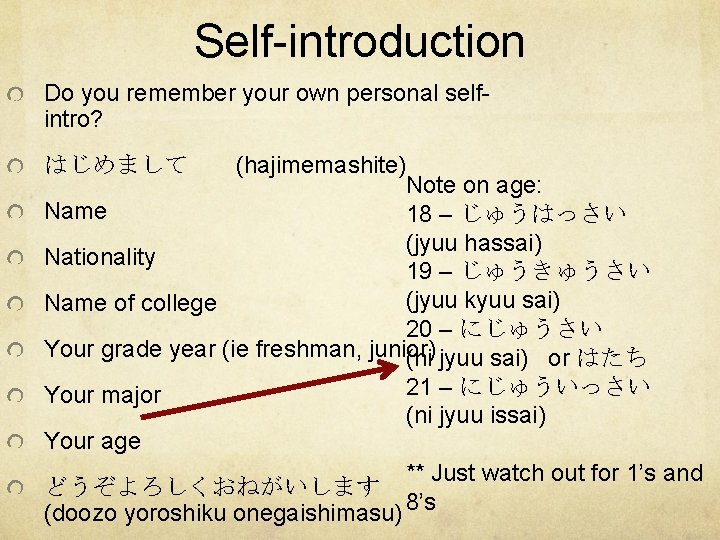 Self-introduction
Do you remember your own personal self-
intro?
はじめまして (hajimemashite)
Name
Nationality
Name of college
Your grade year (ie freshman, junior)
Your major
Your age
どうぞよろしくおねがいします
(doozo yoroshiku onegaishimasu)
Note on age:
18 – じゅうはっさい
(jyuu hassai)
19 – じゅうきゅうさい
(jyuu kyuu sai)
20 – にじゅうさい
(ni jyuu sai) or はたち
21 – にじゅういっさい
(ni jyuu issai)
** Just watch out for 1’s and
8’s